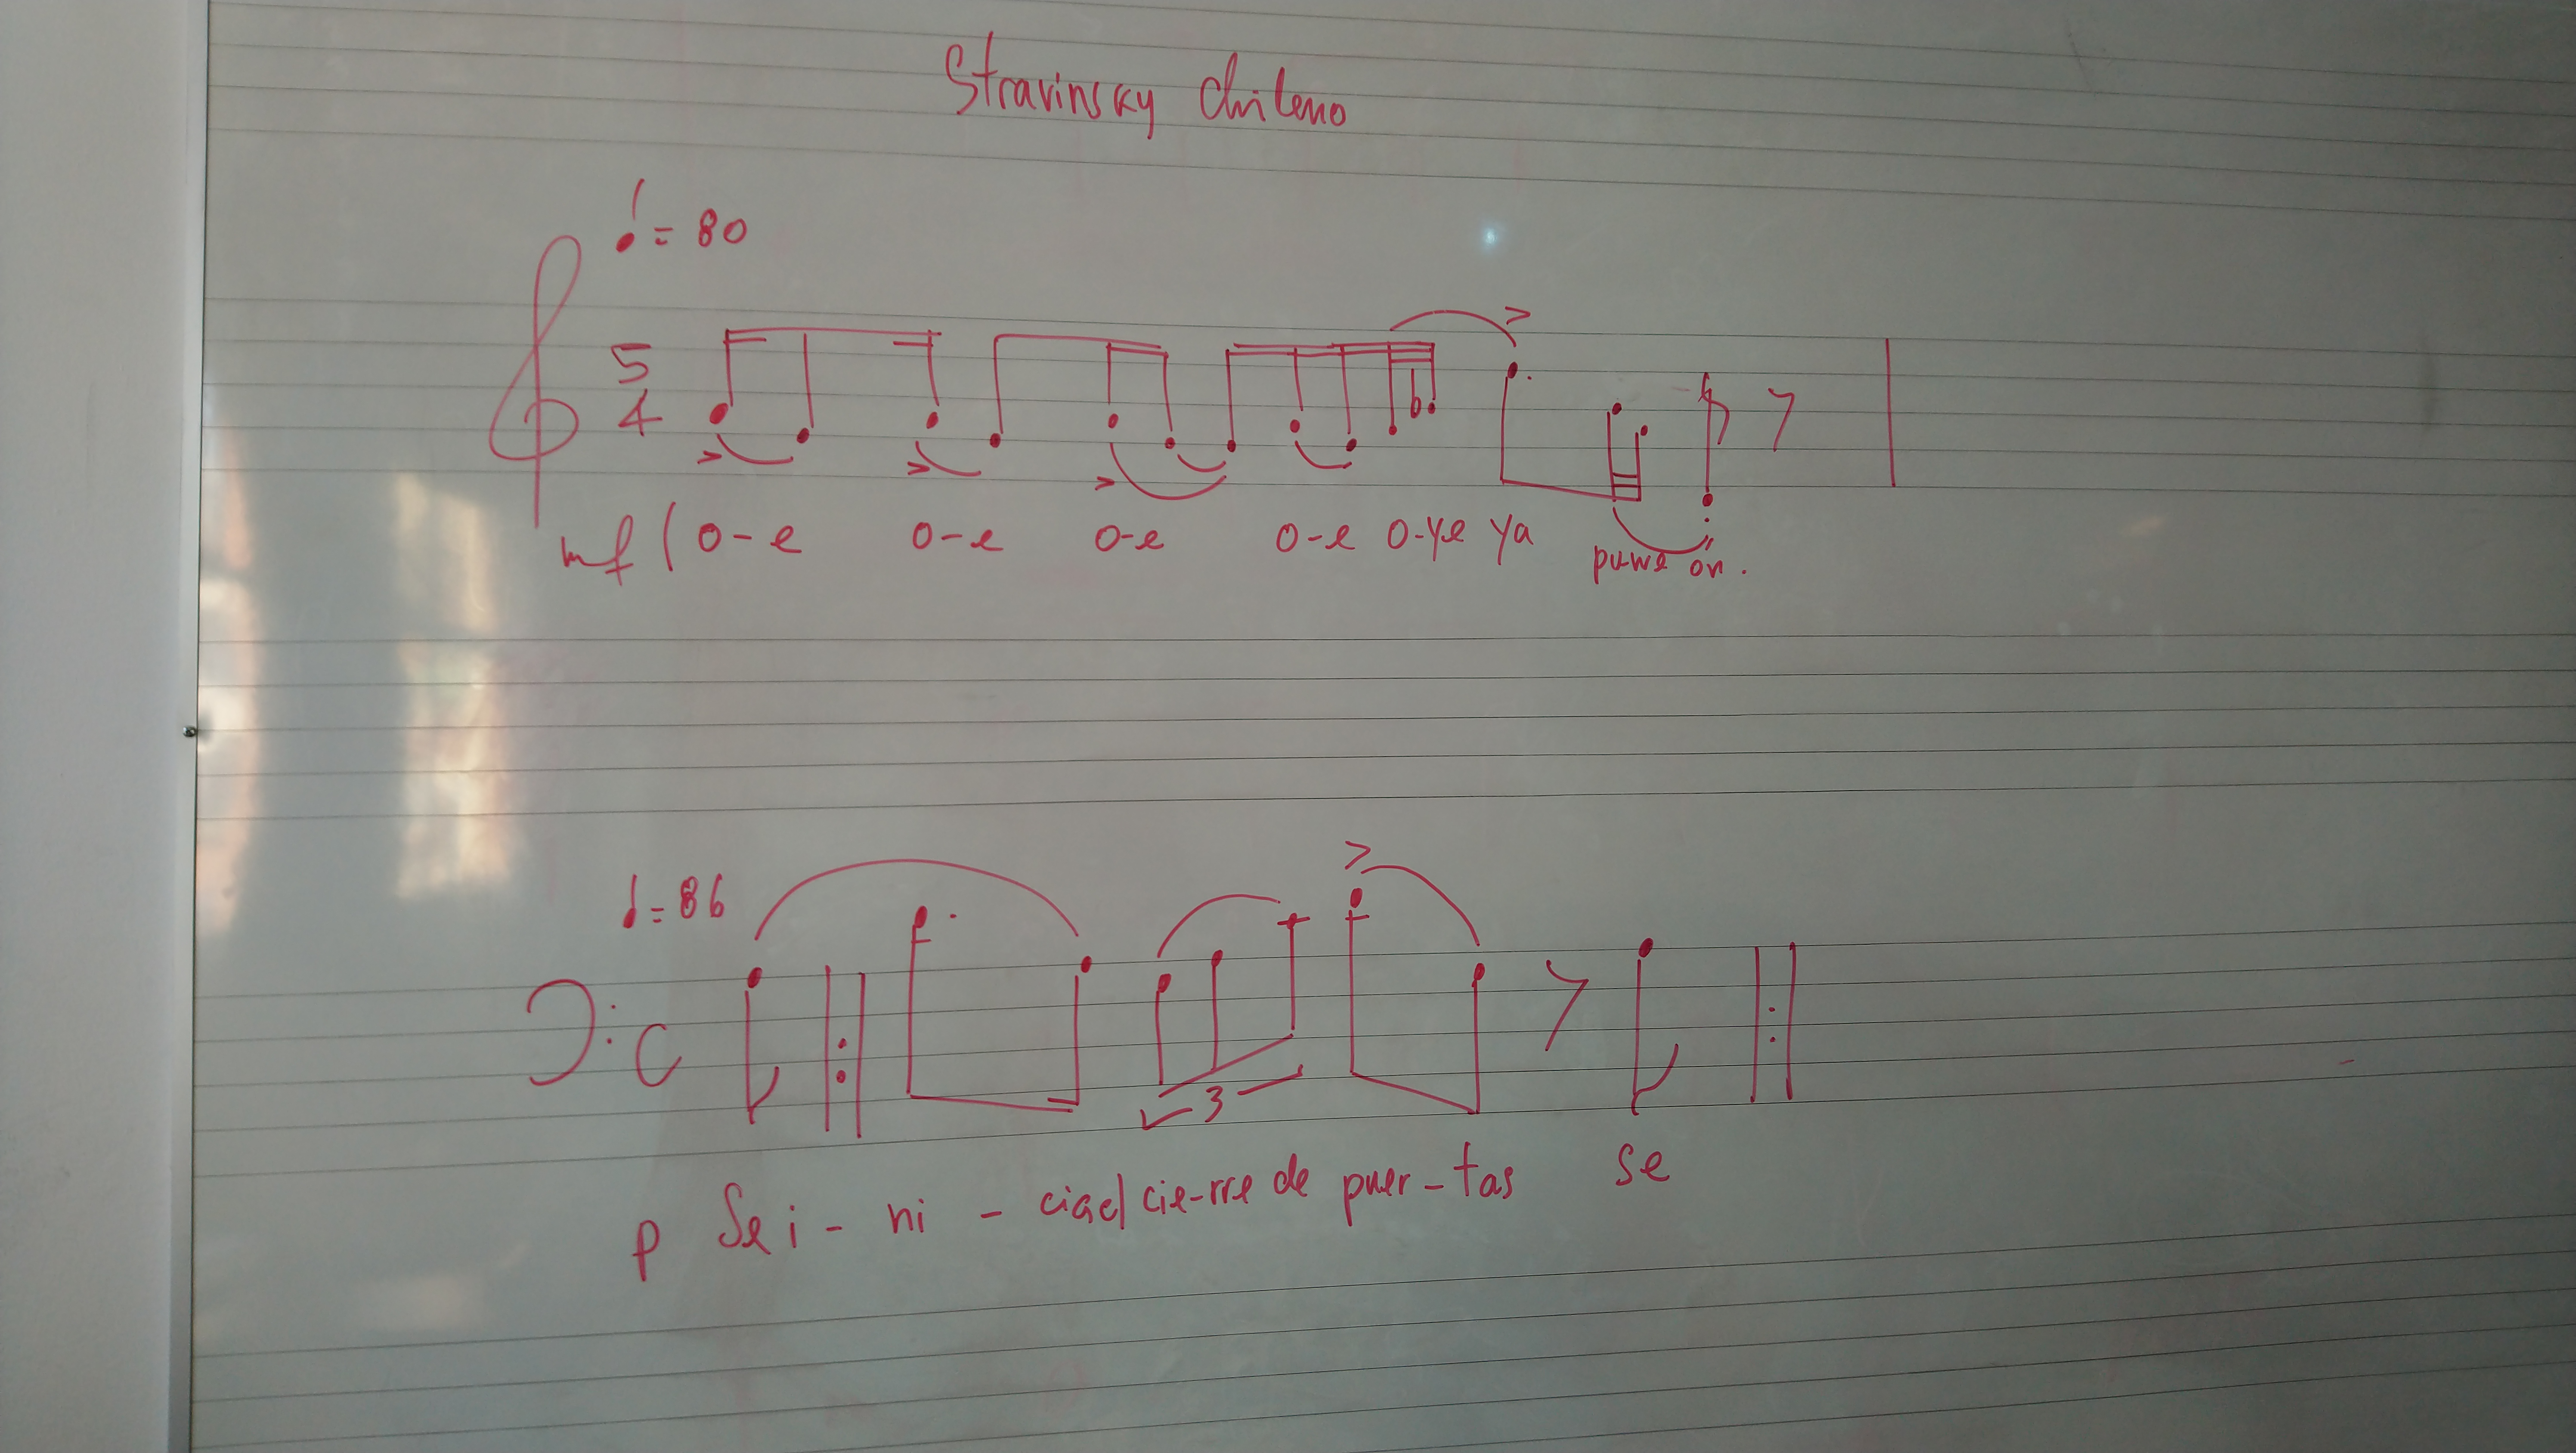 Stravinsky chileno
= 80
5
4
mf ( o-e o-e o-e o-e o-ye ya puwe on.
= 86
C
3
p Se i - ni - ciael cie-rre de puer-tas se